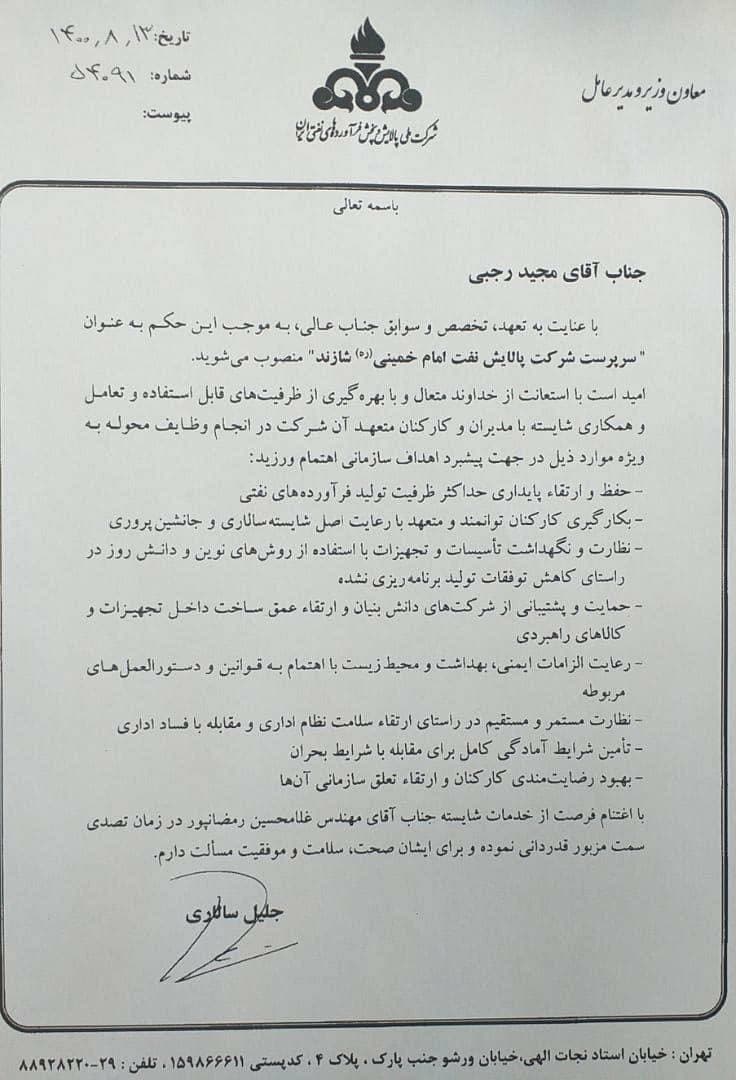 تاریخ: ۱۴۰۰,۸,۱۳
شماره: ۵۴۰۹۱
پیوست:
شرکت ملی پالایش و پخش فرآورده‌های نفتی ایران
معاون وزیر و مدیر عامل
باسمه تعالی
جناب آقای مجید رجبی
با عنایت به تعهد، تخصص و سوابق جناب عالی، به موجب این حکم به عنوان
"سرپرست شرکت پالایش نفت امام خمینی(ره) شازند" منصوب می‌شوید.
امید است با استعانت از خداوند متعال و با بهره‌گیری از ظرفیت‌های قابل استفاده و تعامل
و همکاری شایسته با مدیران و کارکنان متعهد آن شرکت در انجام وظایف محوله به
ویژه موارد ذیل در جهت پیشبرد اهداف سازمانی اهتمام ورزید:
- حفظ و ارتقاء پایداری حداکثر ظرفیت تولید فرآورده‌های نفتی
- بکارگیری کارکنان توانمند و متعهد با رعایت اصل شایسته‌سالاری و جانشین‌پروری
- نظارت و نگهداشت تأسیسات و تجهیزات با استفاده از روش‌های نوین و دانش روز در
راستای کاهش توقفات تولید برنامه‌ریزی نشده
- حمایت و پشتیبانی از شرکت‌های دانش بنیان و ارتقاء عمق ساخت داخل تجهیزات و
کالاهای راهبردی
- رعایت الزامات ایمنی، بهداشت و محیط‌زیست با اهتمام به قوانین و دستورالعمل‌های
مربوطه
- نظارت مستمر و مستقیم در راستای ارتقاء سلامت نظام اداری و مقابله با فساد اداری
- تأمین شرایط آمادگی کامل برای مقابله با شرایط بحران
- بهبود رضایت‌مندی کارکنان و ارتقاء تعلق سازمانی آن‌ها
با اغتنام فرصت از خدمات شایسته جناب آقای مهندس غلامحسین رمضانپور در زمان تصدی
سمت مزبور قدردانی نموده و برای ایشان صحت، سلامت و موفقیت مسألت دارم.
جلیل سالاری
تهران : خیابان استاد نجات الهی،خیابان ورشو جنب پارک ، پلاک ۴ ، کدپستی ۱۵۹۸۶۶۶۱۱ ، تلفن : ۲۹-۸۸۹۲۸۲۲۰